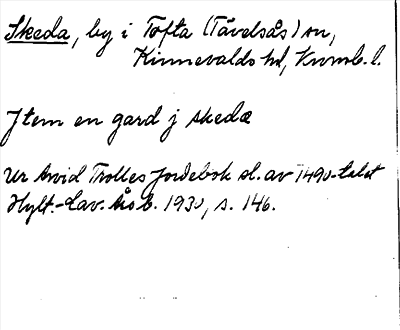 Skeda, by i Tofta (Tävelsås) sn,
Kinnevalds hd, Kronob. l.
Jtem en gard j skedæ
Ur Arvid Trolles Jordebok sl. av 1490-talet
Hylt.-Cav. årsb. 1930, s. 146.